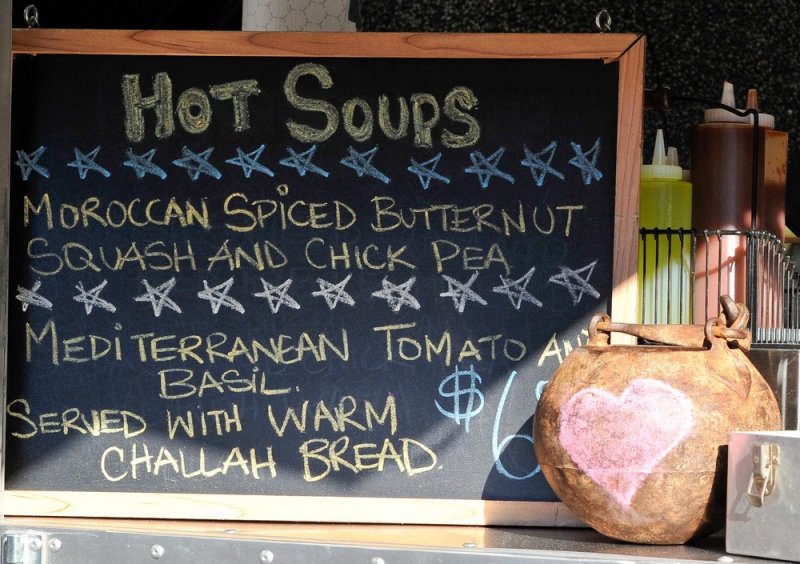 HOT SOUPS
MOROCCAN SPICED BUTTERNUT
SQUASH AND CHICK PEA
MEDITERRANEAN TOMATO
BASIL.
SERVED WITH WARM
CHALLAH BREAD.
$6